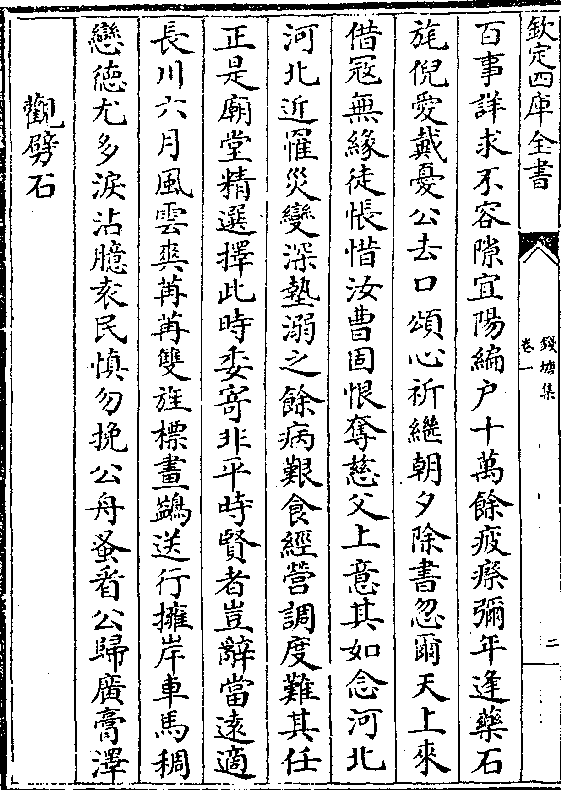 欽定四庫全書
錢塘集
卷一
二
百事詳求不容隙宜陽編户十萬餘疲瘵彌年逢藥石
旄倪愛戴憂公去口頌心祈繼朝夕除書忽爾天上來
借冦無緣徒悵惜汝曹固恨奪慈父上意其如念河北
河北近罹災變深墊溺之餘病艱食經營調度難其任
正是廟堂精選擇此時委寄非平時賢者豈辭當逺適
長川六月風雲爽苒苒雙旌標畫鷁送行擁岸車馬稠
戀德尤多淚沾臆袁民慎勿挽公舟蚤看公歸廣膏澤
觀劈石